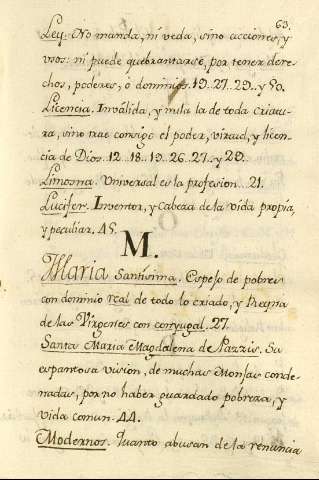 63.
Ley. No manda, ni veda, sino acciones, y
usos: ni puede quebrantarse, por tener dere-
chos, poderes, ó dominios. 19. 27. 29. y 50.
Licencia. Inválida, y nula la de toda criatu-
ra, sino trae consigo el poder, virtud, y licen-
cia de Dios. 12. 18. 19. 26. 27. y 29.
Limosna. Universal es la profesion. 21.
Lucifer. Inventor, y Cabeza de la vida propia,
y peculiar. 45.
M.
Maria Santisima. Espejo de pobres
con dominio real de todo lo criado, y Reyna
de las Virgenes con conyugal. 27.
Santa Maria Magdalena de Pazzis. Su
espantosa vision, de muchas Monjas conde-
nadas, por no haber guardado pobreza, y
vida comun. 44.
Modernos. Quanto abusan de la renuncia